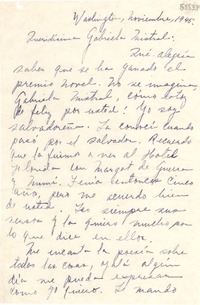 Washington, Noviembre, 1945.
Queridísima Gabriela Mistral:
Qué alegría
saber que se ha ganado el
premio novel. No se imagina,
Gabriela Mistral, como estoy
de feliz por usted! Yo soy
salvadoreña. La conocí cuando
pasó por el salvador. Recuerdo
que la fuimos a ver al Hotel
Florida con Margot de
y mamá. Tenía entonces cinco
años, pero me acuerdo bien
de usted. Leo siempre sus
versos y la quiero mucho por
lo que dice en ellos.
Me encanta la poesía sobre
todas las cosas, y ojalá algún
día me pueda expresar
como yo quiero. Le mando